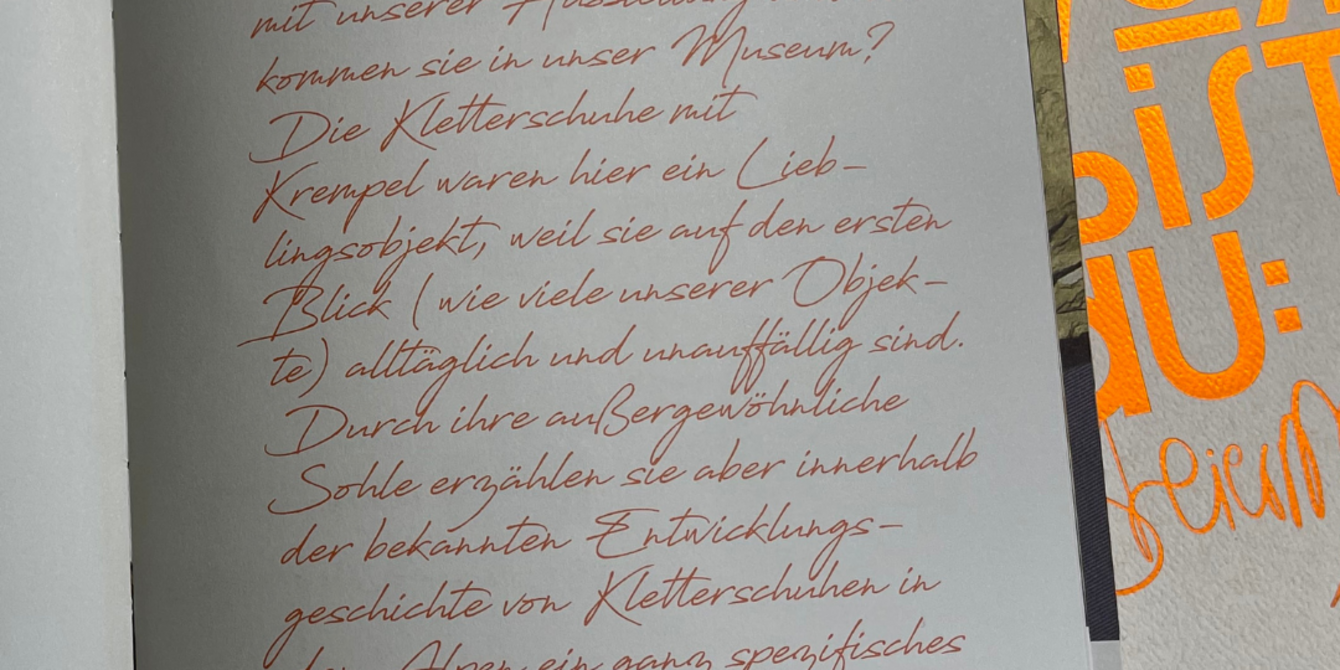 mit unserer Ausstellung
kommen sie in unser Museum?
Die Kletterschuhe mit
Krempel waren hier ein Lieb-
lingsobjekt, weil sie auf den ersten
Blick (wie viele unserer Objek-
te) alltäglich und unauffällig sind.
Durch ihre außergewöhnliche
Sohle erzählen sie aber innerhalb
der bekannten Entwicklungs-
geschichte von Kletterschuhen in
den Alpen ein ganz spezifisches
IST